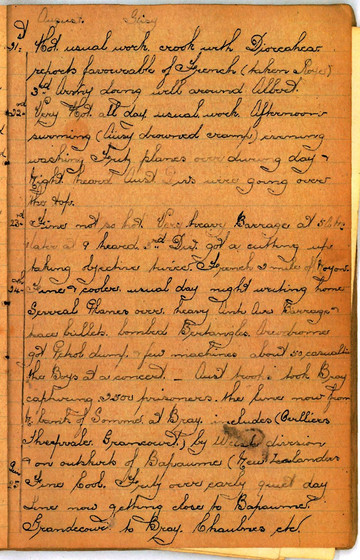 August Glisy
21st Hot usual work. crook with Diorreahea
reports favourable of French (taken Roye)
3rd Army doing well around Albert.
22nd Very Hot all day usual work. Afternoon
swimming (Aussy drowned cramp) evening
washing Fritz planes over during day &
Night heard Aust Divs were going over
the top.
23rd Fine not so hot. Very heavy Barrage at 5
later at 9 heard 3rd Div. got a cutting up
taking Lyretine twice. French 2 miles of Noyon
24th Fine & cooler. usual day night writing home
Several Planes over. heavy Anti Air Barrage &
trace bullets. bombed Bertangles Aerodrome
got Petrol dump. & few machines about 50 casualt
the Boys at a concert - Aust troops took Bray
capturing 2500 prisoners. the line now from
bank of Somme at Bray. includes (Cuilliers
Thiepvale. Grancourt) by division
& on outskirts of Bapaume (New Zealanders
25 Fine Cool. Fritz over early quiet day
Line now getting close to Bapaume.
Grandcourt to Bray. Chaulnes etc.